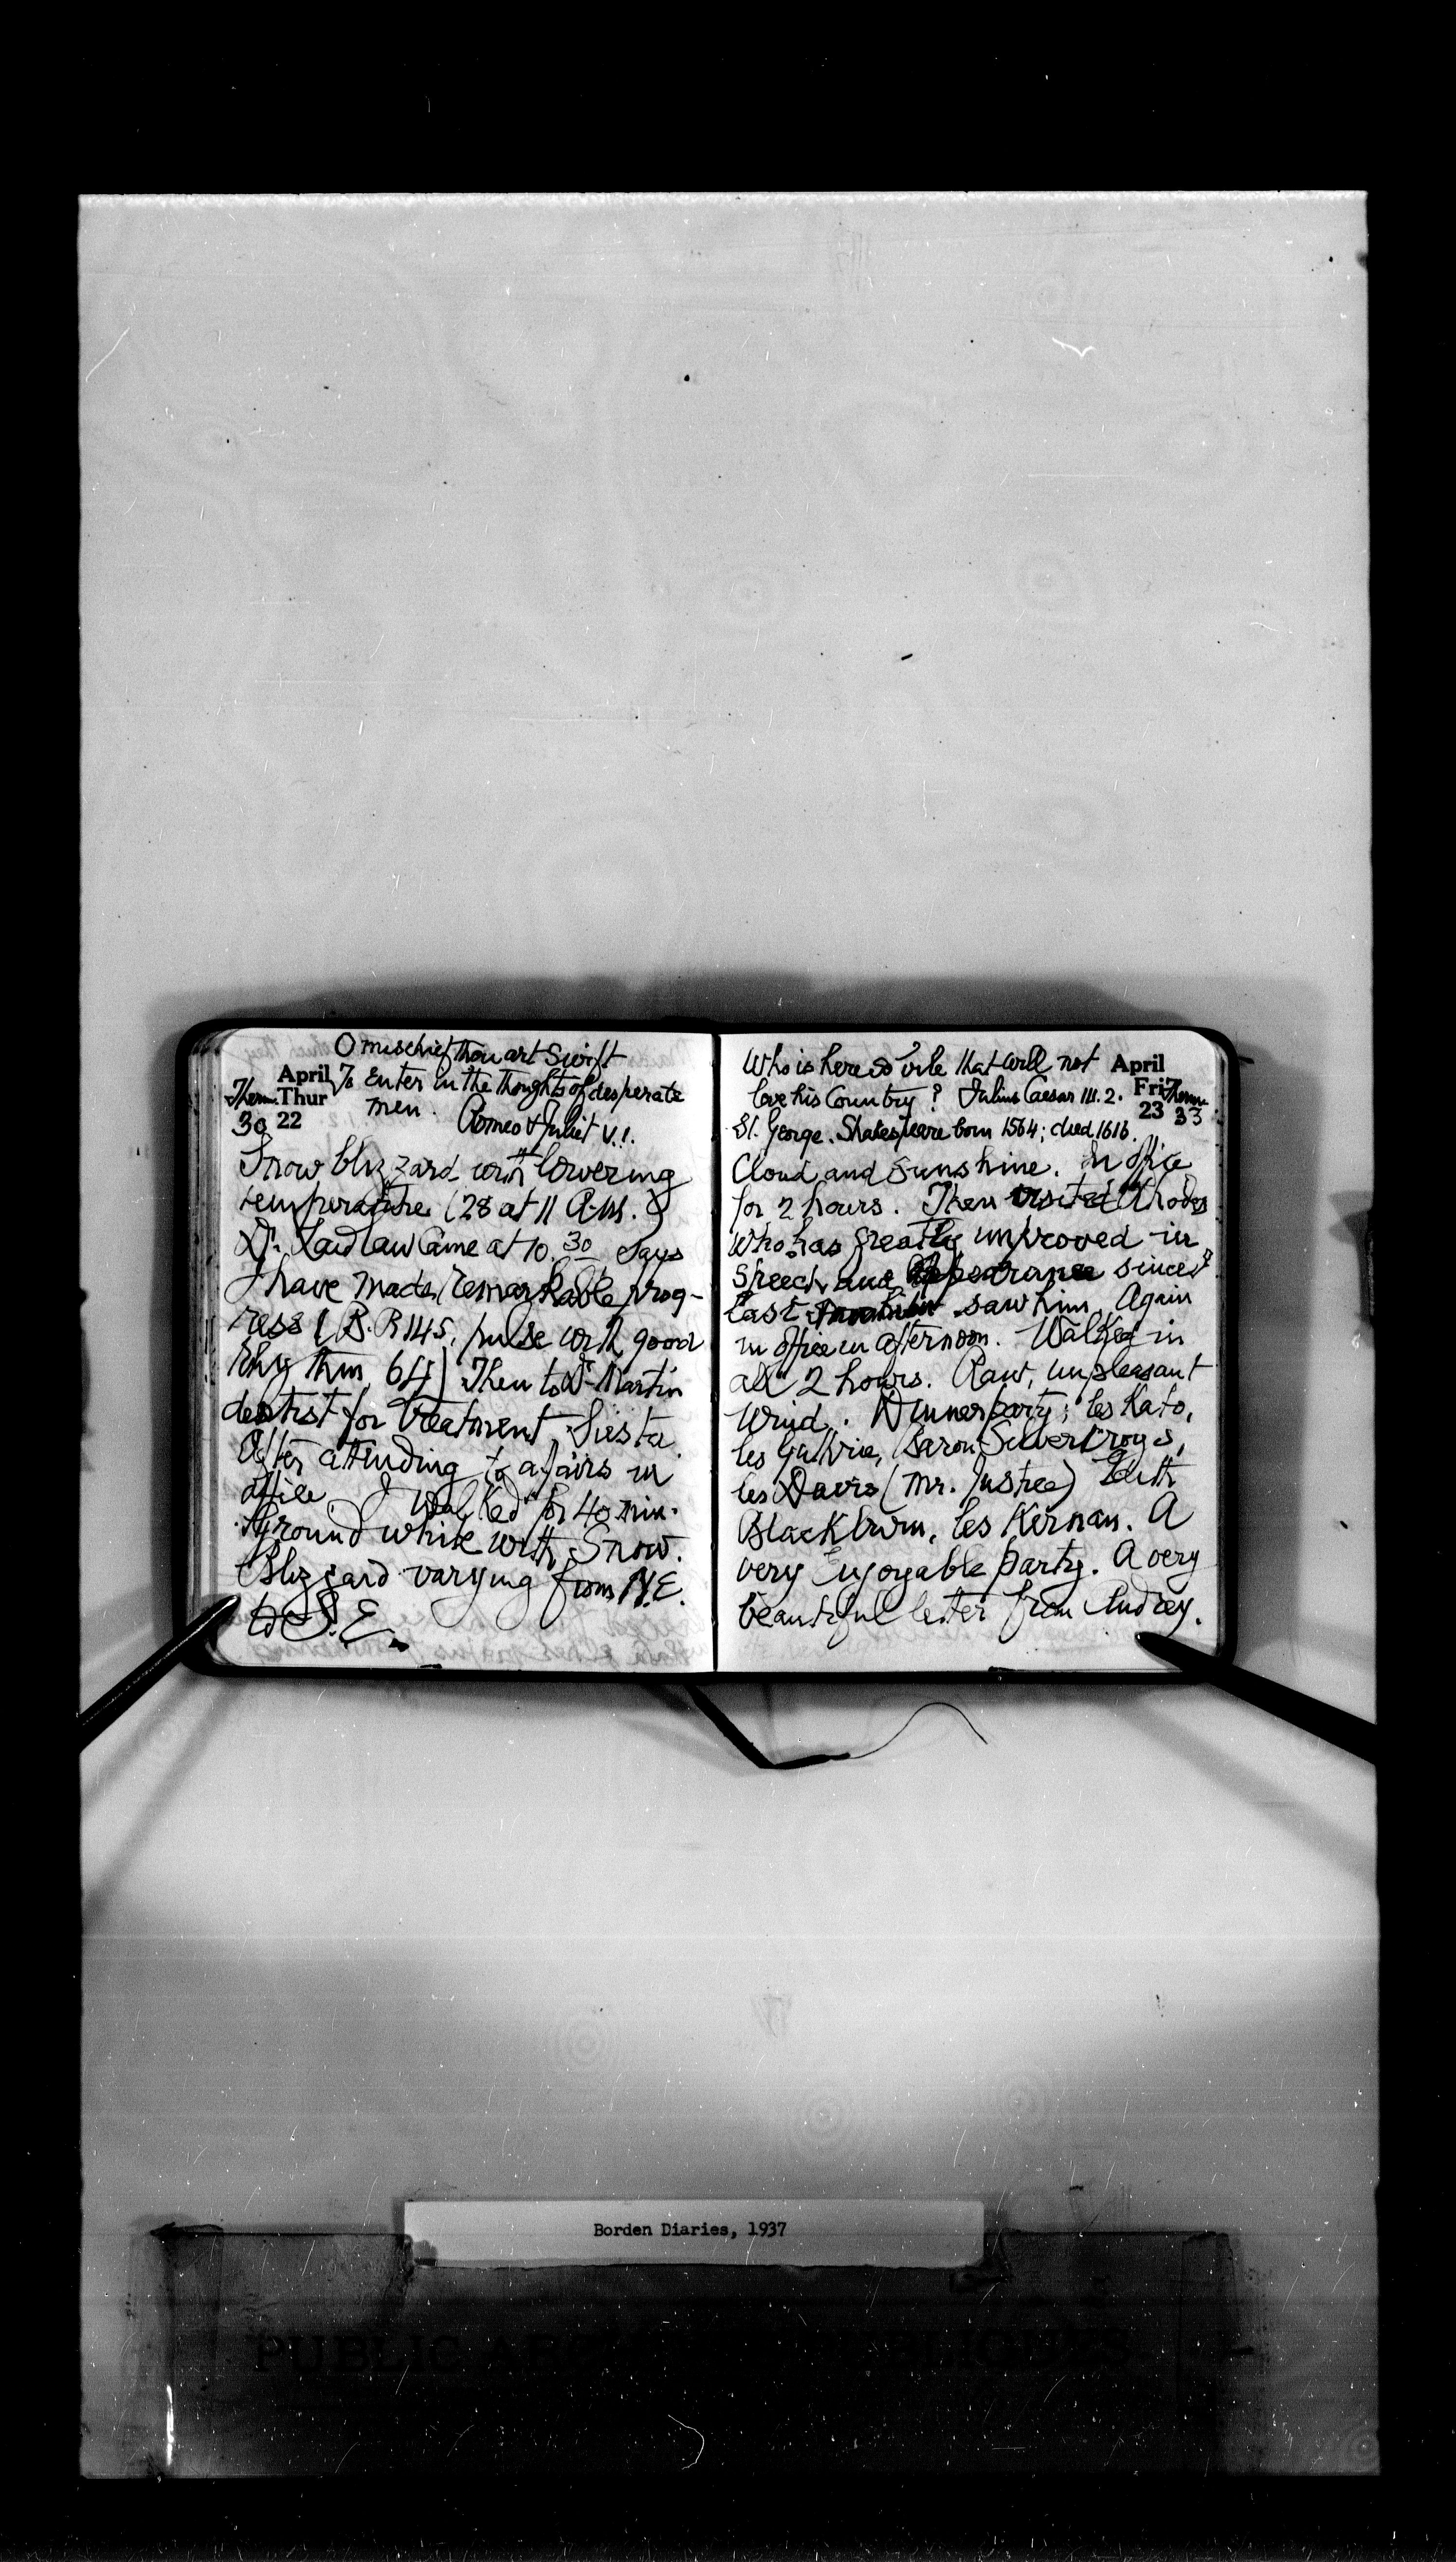 O mischief thou art Swift
April To Enter in the thoughts of desperate
Therm. Thur men.
30 22 Romeo & Juliet V.1.
Snow blizzard with lowering
temperature (28 at 11 A.M.)
Dr. Laidlaw came at 10.30 Says
I have made remarkable prog-
ress (B.P. 145, pulse with good
rhythm, 64) Then to Dr. Martin
dentist for treatment. Siesta.
After attending to affairs in
office I walked for 40 min.
Ground white with Snow.
Blizzard varying from N.E.
to S.E.
Who is here so vile that will not April
love his Country? Julius Caesar III.2. Fri Therm.
23 33
St. George. Shakespeare born 1564; died 1616.
Cloud and Sunshine. In office
for 2 hours. Then visited Rhodes
who has greatly improved in
speech and appearance since I
last saw him. Again
in office in afternoon. Walked in
all 2 hours. Raw, unpleasant
wind. Dinner party; les Kato,
les Guthrie, Baron Silvercruys,
les Davis (Mr. Justice) Edith
Blackburn, les Kirnan. A
very Enjoyable party. A very
beautiful letter from Audrey.
Borden Diaries, 1937